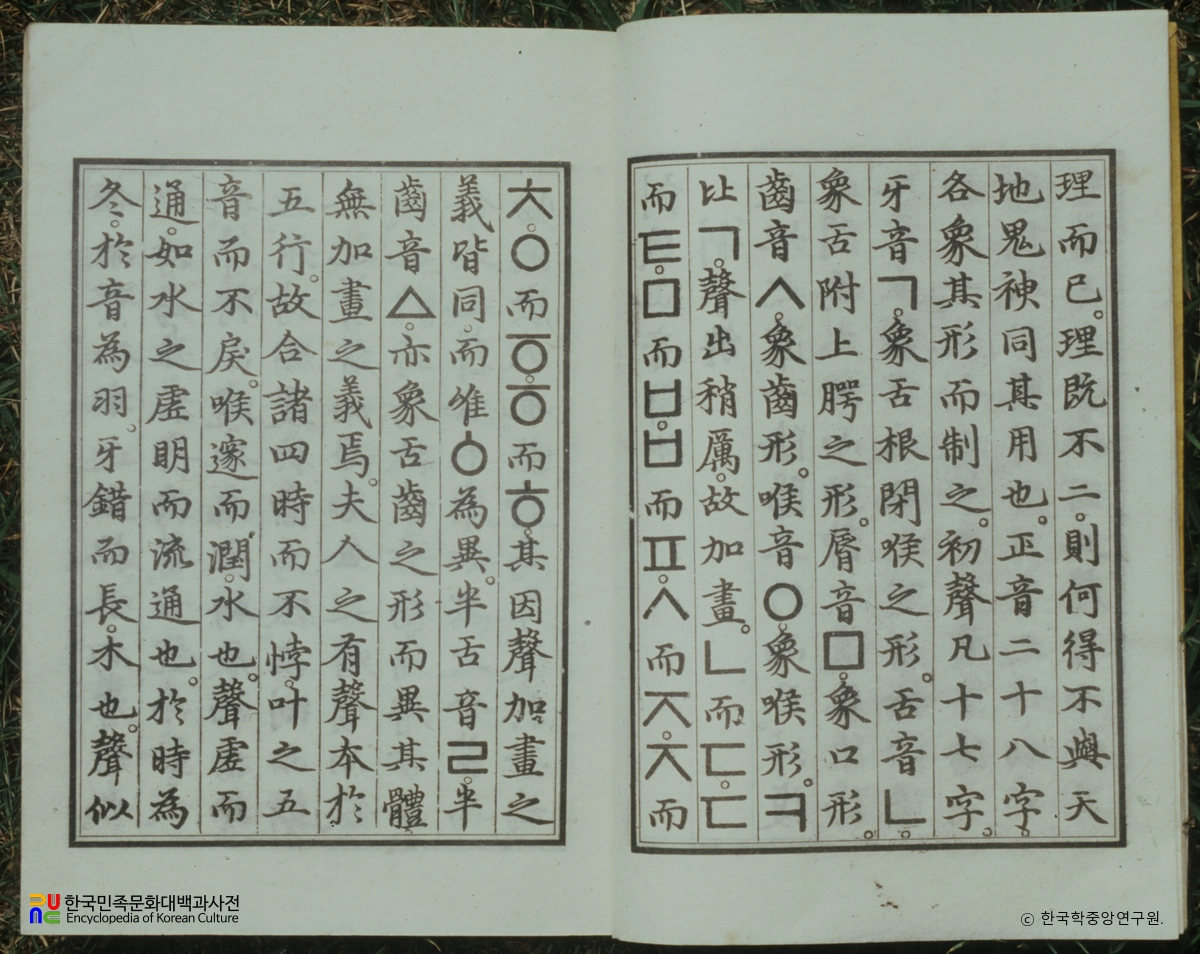 理而已。理既不二。則何得不與天
地鬼神同其用也。正音二十八字。
各象其形而制之。初聲凡十七字。
牙音ㄱ。象舌根閉喉之形。舌音ㄴ。
象舌附上腭之形。脣音ㅁ。象口形。
齒音ㅅ。象齒形。喉音ㅇ。象喉形。ㅋ
比ㄱ。聲出稍厲。故加畫。ㄴ而ㄷ。ㄷ
而ㅌ。ㅁ而ㅂ。ㅂ而ㅍ。ㅅ而ㅈ。ㅈ而
ㅊ。ㅇ而ㆆ。ㆆ而ㅎ。其因聲加畫之
義皆同。而唯ㆁ為異。半舌音ㄹ。半
齒音ㅿ。亦象舌齒之形而異其體。
無加畫之義焉。夫人之有聲本於
五行。故合諸四時而不悖。叶之五
音而不戾。喉邃而潤。水也。聲虛而
通。如水之虛明而流通也。於時為
冬。於音為羽。牙錯而長。木也。聲似
한국민족문화대백과사전
Encyclopedia of Korean Culture
© 한국학중앙연구원.